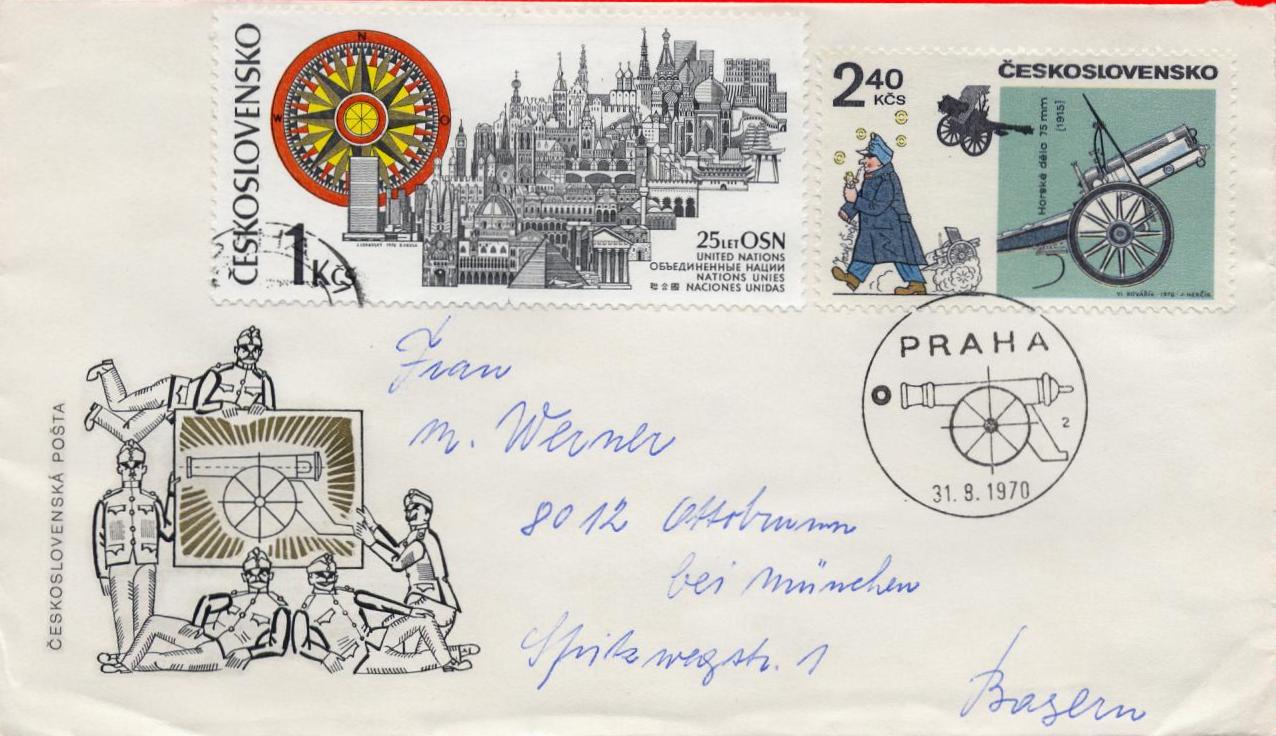 ČESKOSLOVENSKO
N
W
O
1 Kčs
25 LET OSN
UNITED NATIONS
ОБЪЕДИНЕННЫЕ НАЦИИ
NATIONS UNIES
聯合國 NACIONES UNIDAS
2 40
KČS
ČESKOSLOVENSKO
Horské dělo 75 mm
(1915)
VL. KOVÁŘÍK · 1970 · J. HERČÍK
PRAHA
2
31. 8. 1970
ČESKOSLOVENSKÁ POŠTA
Frau
M. Werner
8012 Ottobrunn
bei München
Spitzwegstr. 1
Bayern